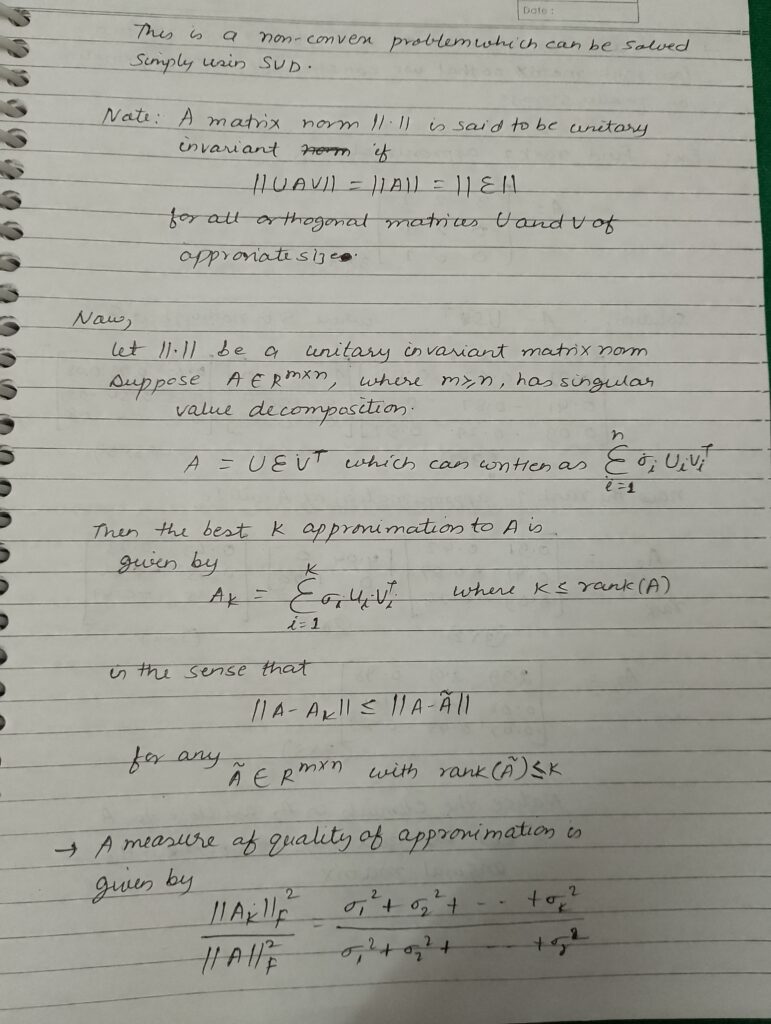 Date :
This is a non-convex problem which can be solved
Simply usin SVD.
Note: A matrix norm ||·|| is said to be unitary
invariant norm if
||UAV|| = ||A|| = ||Σ||
for all orthogonal matrices U and V of
approriate size.
Now,
let ||·|| be a unitary invariant matrix norm
Suppose A ∈ R^{m×n}, where m≥n, has singular
value decomposition.
A = UΣV^T which can written as Σ_{i=1}^{n} σ_i U_i V_i^T
Then the best k approximation to A is
given by
A_k = Σ_{i=1}^{k} σ_i U_i V_i^T where k ≤ rank(A)
in the sense that
||A - A_k|| ≤ ||A - Ã||
for any Ã ∈ R^{m×n} with rank(Ã) ≤ k
→ A measure of quality of approximation is
given by
||A_k||_F^2 / ||A||_F^2 = σ_1^2 + σ_2^2 + - - + σ_k^2 / σ_1^2 + σ_2^2 + - - - + σ_r^2